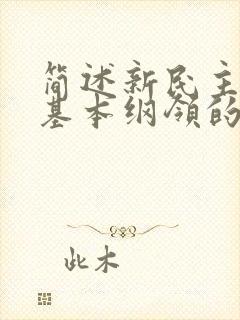 简述新民主
基本纲领的
此木